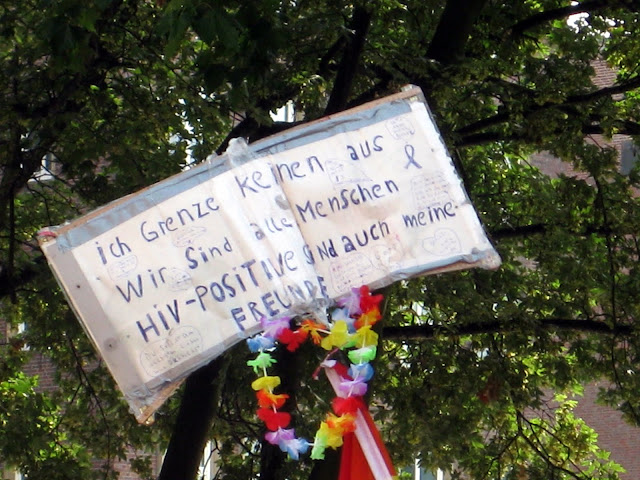 ich Grenze keinen aus
Wir sind alle Menschen
HIV-POSITIVE sind auch meine
FREUNDE